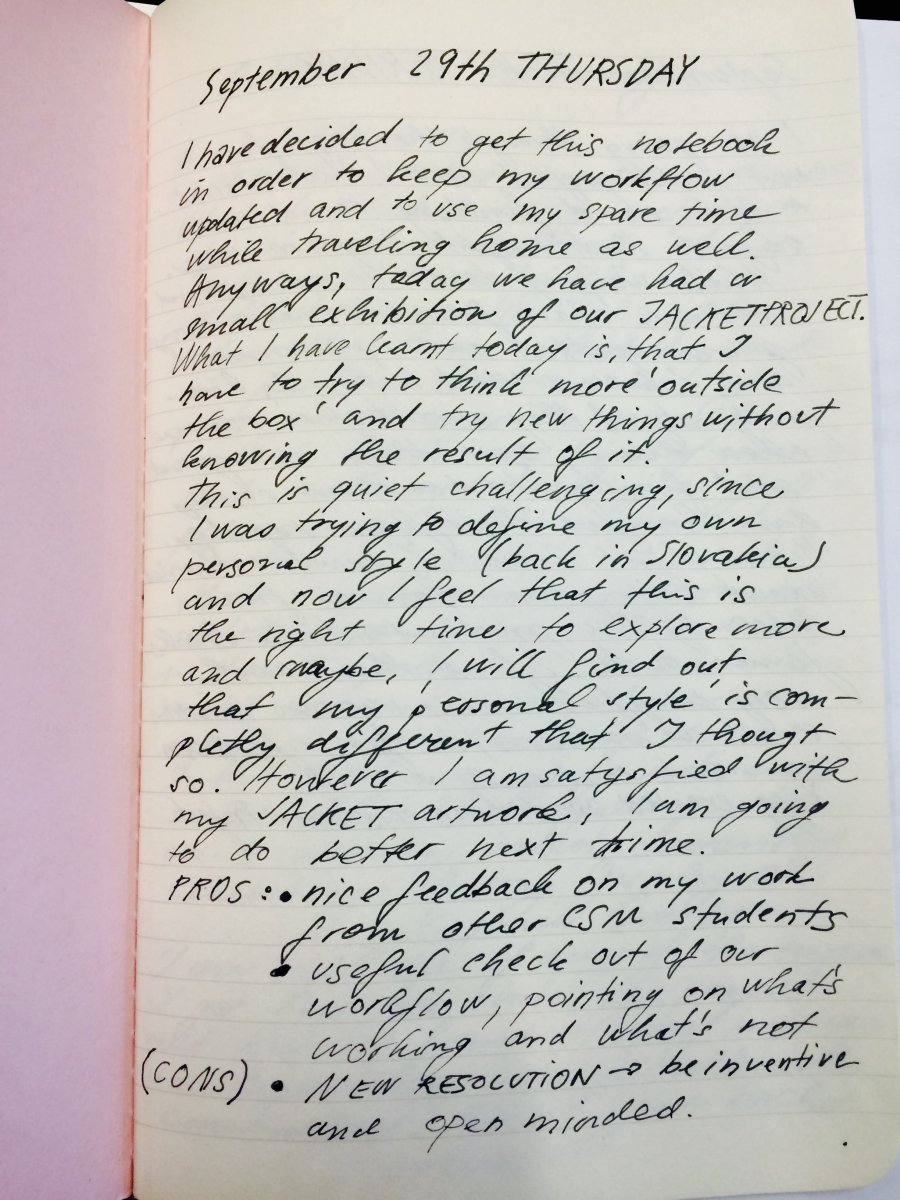 September 29th THURSDAY
I have decided to get this notebook
in order to keep my workflow
updated and to use my spare time
while traveling home as well.
Anyways, today we have had a
small exhibition of our JACKETPROJECT.
What I have learnt today is, that I
have to try to think more 'outside
the box' and try new things without
knowing the result of it.
This is quiet challenging, since
I was trying to define my own
personal style (back in Slovakia)
and now I feel that this is
the right time to explore more
and maybe, I will find out
that my 'personal style' is com-
pletly different that I thougt
so. However I am satysfied with
my JACKET artwork, I am going
to do better next time.
PROS: • nice feedback on my work
from other CSM students
• useful check out of our
workflow, pointing on what's
working and what's not
(CONS) • NEW RESOLUTION → be inventive
and open minded.